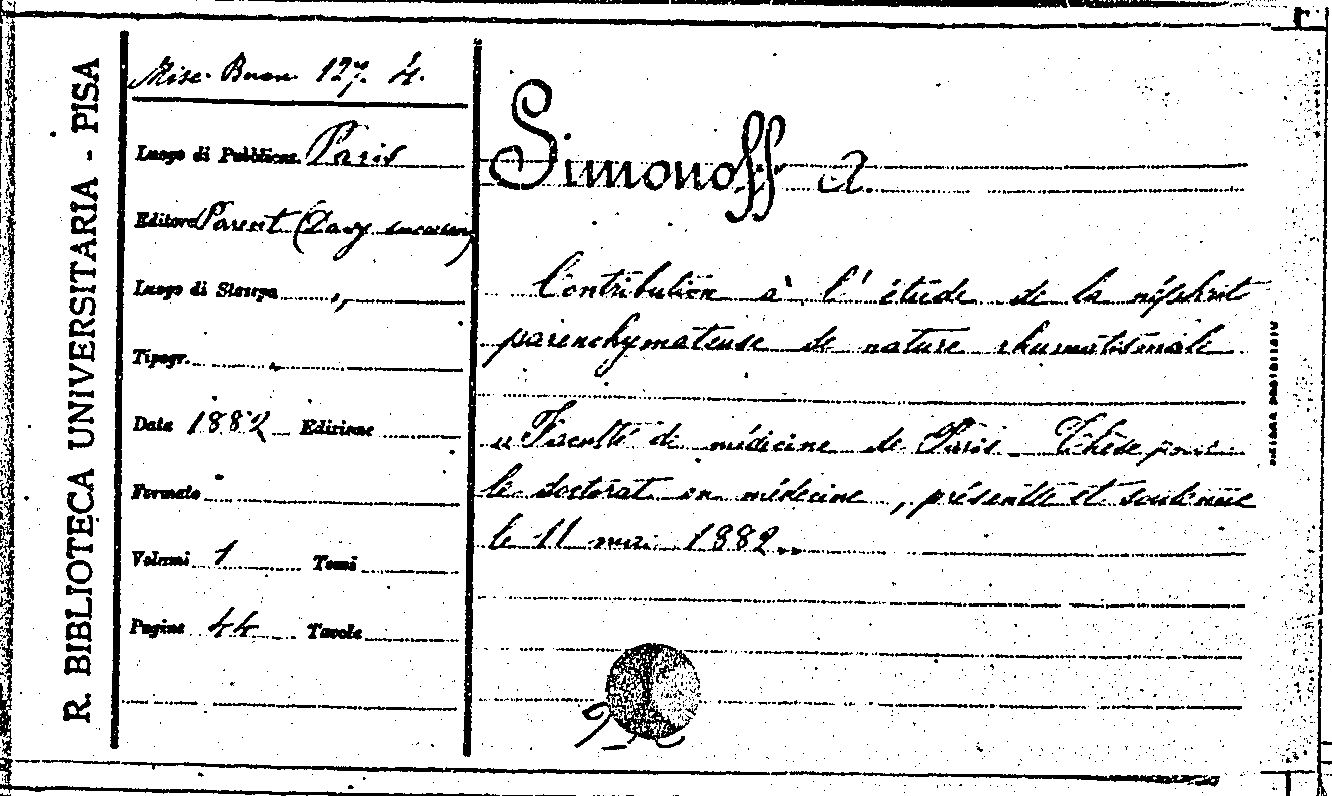 R. BIBLIOTECA UNIVERSITARIA - PISA
Misc. Buon. 127. 4.
Luogo di Pubblicaz. Paris
Editore Parent (Davy successeur)
Luogo di Stampa "
Tipogr. "
Data 1882 Edizione
Formato
Volumi 1 Tomi
Pagine 44 Tavole
Simonoff A.
Contribution à l'étude de la néphrite
parenchymateuse de nature rhumatismale
« Faculté de médicine de Paris - Thèse pour
le doctorat en médecine, présentée et soutenue
le 11 mai 1882 »